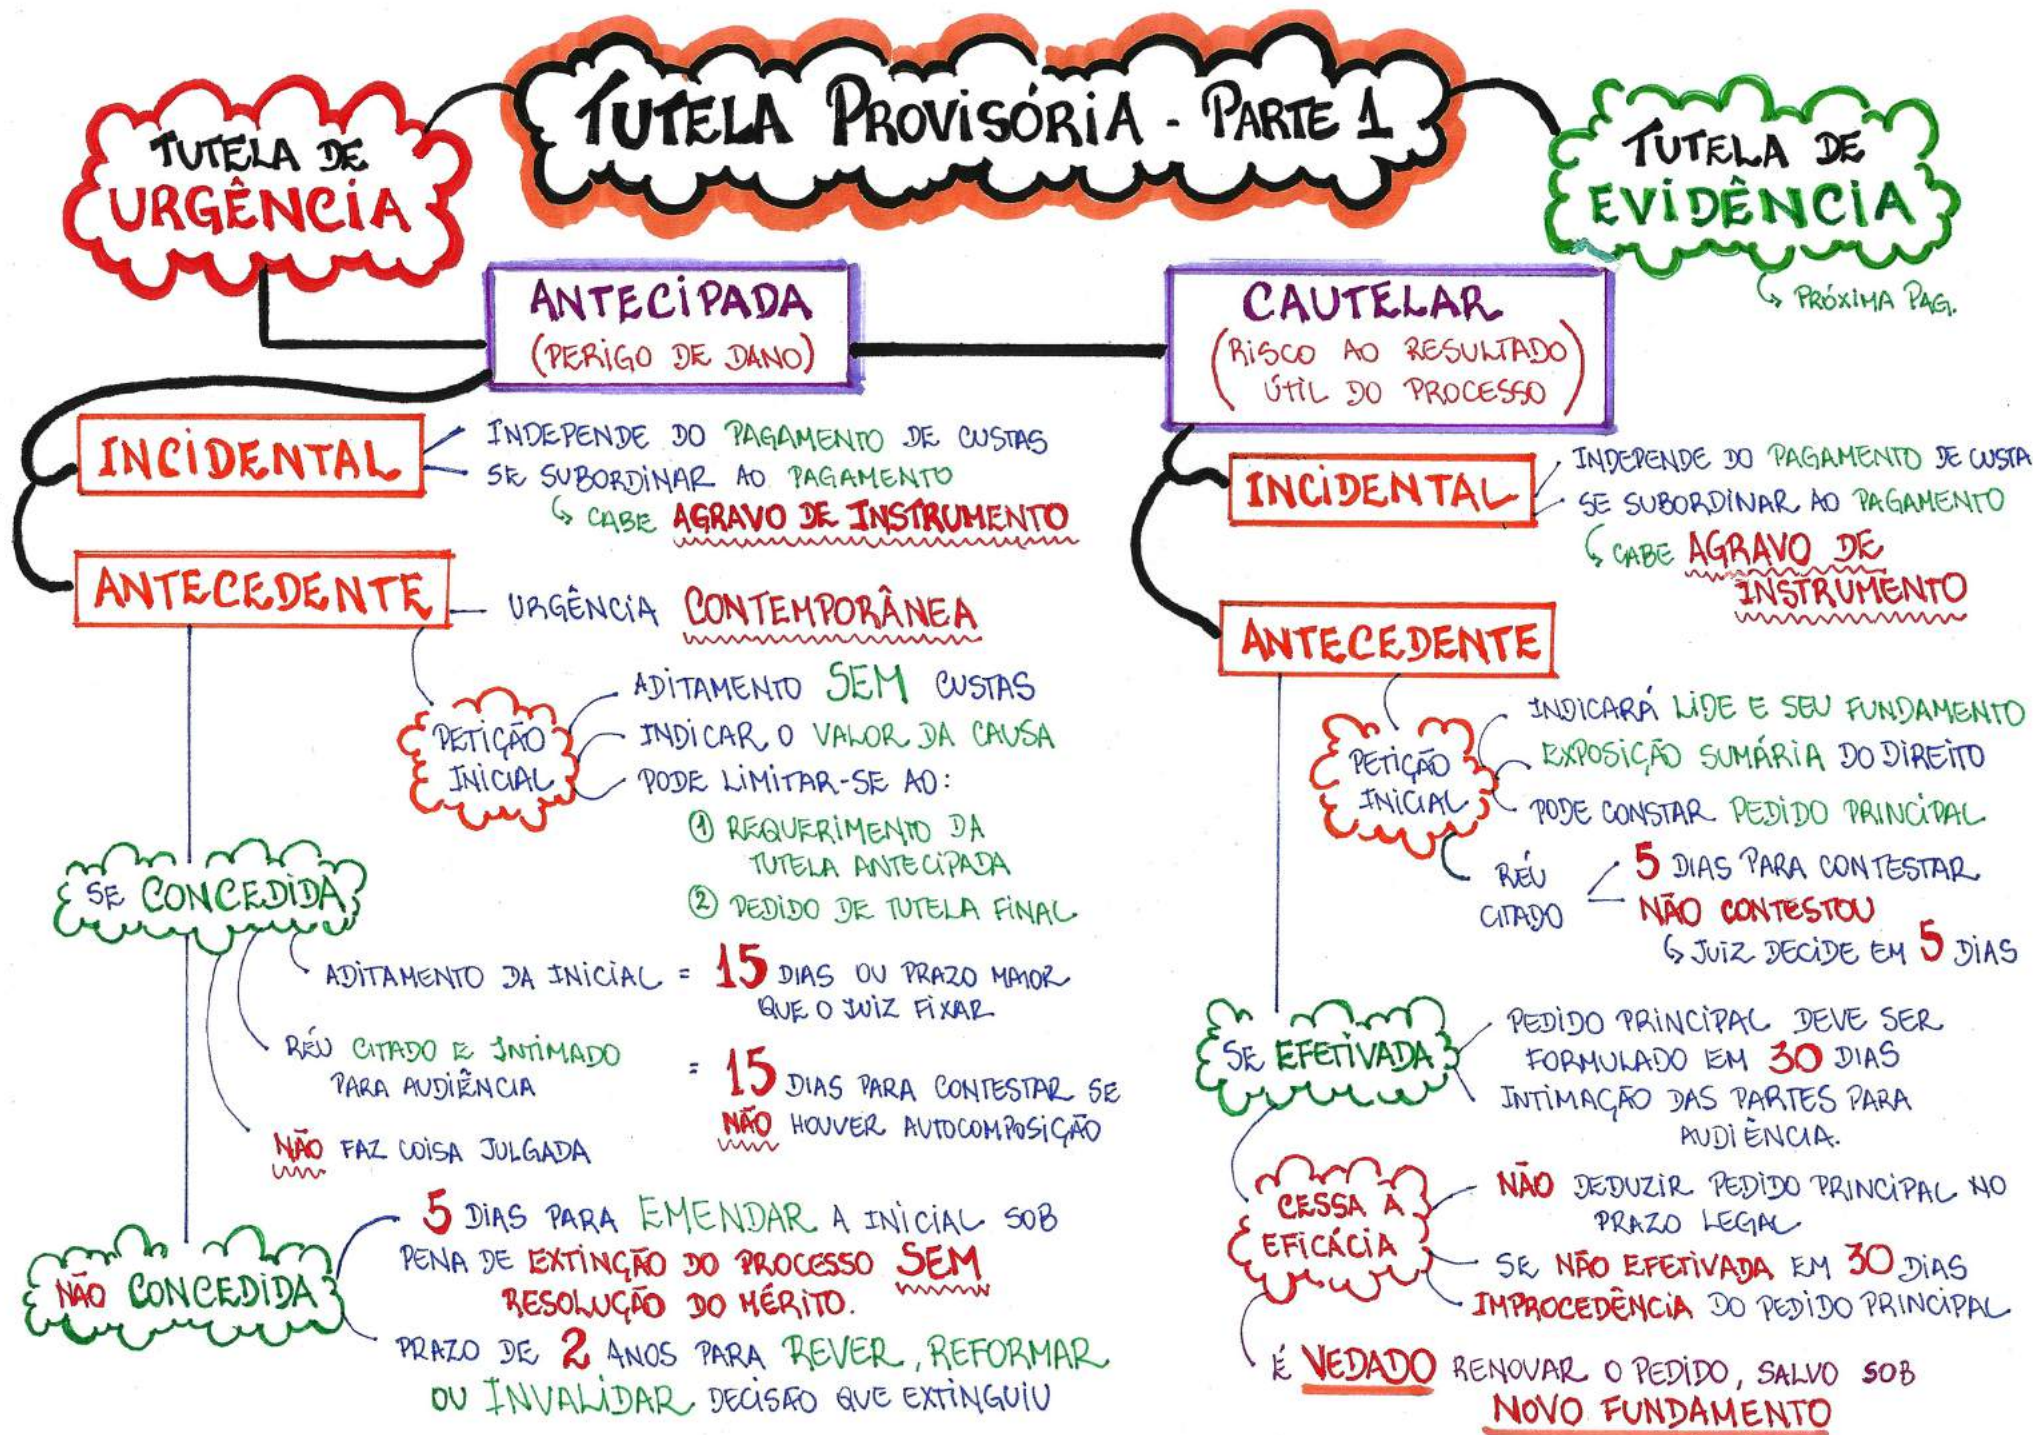 TUTELA PROVISÓRIA - PARTE 1
TUTELA DE
URGÊNCIA
TUTELA DE
EVIDÊNCIA
↳ PRÓXIMA PAG.
ANTECIPADA
(PERIGO DE DANO)
CAUTELAR
(RISCO AO RESULTADO
ÚTIL DO PROCESSO)
INCIDENTAL
INDEPENDE DO PAGAMENTO DE CUSTAS
SE SUBORDINAR AO PAGAMENTO
↳ CABE AGRAVO DE INSTRUMENTO
ANTECEDENTE
URGÊNCIA CONTEMPORÂNEA
PETIÇÃO
INICIAL
ADITAMENTO SEM CUSTAS
INDICAR O VALOR DA CAUSA
PODE LIMITAR-SE AO:
① REQUERIMENTO DA
TUTELA ANTECIPADA
② PEDIDO DE TUTELA FINAL
SE CONCEDIDA
ADITAMENTO DA INICIAL = 15 DIAS OU PRAZO MAIOR
QUE O JUIZ FIXAR
RÉU CITADO E INTIMADO
PARA AUDIÊNCIA
= 15 DIAS PARA CONTESTAR SE
NÃO HOUVER AUTOCOMPOSIÇÃO
NÃO FAZ COISA JULGADA
NÃO CONCEDIDA
5 DIAS PARA EMENDAR A INICIAL SOB
PENA DE EXTINÇÃO DO PROCESSO SEM
RESOLUÇÃO DO MÉRITO.
PRAZO DE 2 ANOS PARA REVER, REFORMAR
OU INVALIDAR DECISÃO QUE EXTINGUIU
INCIDENTAL
INDEPENDE DO PAGAMENTO DE CUSTA
SE SUBORDINAR AO PAGAMENTO
↳ CABE AGRAVO DE
INSTRUMENTO
ANTECEDENTE
PETIÇÃO
INICIAL
INDICARÁ LIDE E SEU FUNDAMENTO
EXPOSIÇÃO SUMÁRIA DO DIREITO
PODE CONSTAR PEDIDO PRINCIPAL
RÉU
CITADO
5 DIAS PARA CONTESTAR
NÃO CONTESTOU
↳ JUIZ DECIDE EM 5 DIAS
SE EFETIVADA
PEDIDO PRINCIPAL DEVE SER
FORMULADO EM 30 DIAS
INTIMAÇÃO DAS PARTES PARA
AUDIÊNCIA.
CESSA A
EFICÁCIA
NÃO DEDUZIR PEDIDO PRINCIPAL NO
PRAZO LEGAL
SE NÃO EFETIVADA EM 30 DIAS
IMPROCEDÊNCIA DO PEDIDO PRINCIPAL
É VEDADO RENOVAR O PEDIDO, SALVO SOB
NOVO FUNDAMENTO